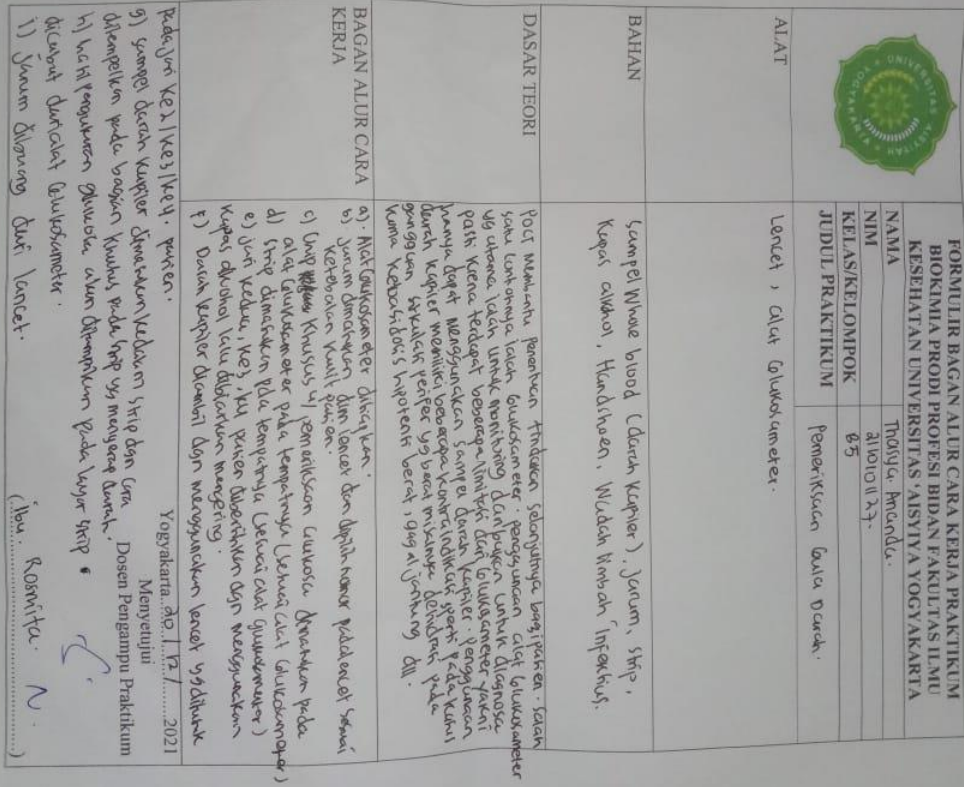 UNIVERSITAS AISYIYAH
YOGYAKARTA
FORMULIR BAGAN ALUR CARA KERJA PRAKTIKUM
BIOKIMIA PRODI PROFESI BIDAN FAKULTAS ILMU
KESEHATAN UNIVERSITAS 'AISYIYA YOGYAKARTA
NAMA Thasya Amanda.
NIM 2110101127.
KELAS/KELOMPOK B5
JUDUL PRAKTIKUM Pemeriksaan Gula Darah.
ALAT
Lencet, alat Glukosameter.
BAHAN
Sampel Whole blood (darah Kapiler), Jarum, Strip,
Kapas alkohol, Handshoen, Wadah limbah infeksius.
DASAR TEORI
POCT Membantu Penentuan tindakan selanjutnya bagi pasien. Salah
satu contohnya ialah Glukosameter. penggunaan alat Glukosameter
yg utama ialah untuk monitoring dan bukan untuk diagnosa
pasti karena terdapat beberapa limitasi dari Glukosameter yakni
hanya dapat menggunakan sampel darah kapiler. Penggunaan
darah kapiler memiliki beberapa kontraindikasi sperti pada kasus
gangguan sirkulasi perifer yg berat misalnya dehidrasi pada
koma Ketoasidosis hipotensi berat, gagal jantung dll.
BAGAN ALUR CARA
KERJA
a). Alat Glukosameter disiapkan.
b) Jarum dimasukan dlm lencet dan dipilih nomor pada lencet sesuai
ketebalan kulit pasien.
c) Chip khusus u/ pemeriksaan Glukosa dimasukan pada
alat Glukosameter pada tempatnya (sesuai alat Glukosameter)
d) Strip dimasukan pda tempatnya (sesuai alat glukosameter)
e) Jari kedua, ke3, k4 pasien dibersihkan dgn menggunakan
kapas alkohol lalu dibiarkan mengering.
f) Darah kapiler diambil dgn menggunakan lencet yg ditusuk
pada jari ke2/ke3/ke4. pasien.
g) sampel darah kapiler dimasukan kedalam strip dgn cara
ditempelkan pada bagian khusus pada strip yg menyerap darah.
h) hasil pengukuran glukosa akan ditampilkan pada layar strip
dicabut dari alat Glukosameter.
i) Jarum dibuang dari lancet.
Yogyakarta 20/12/ 2021
Menyetujui
Dosen Pengampu Praktikum
(Ibu. Rosmita.)